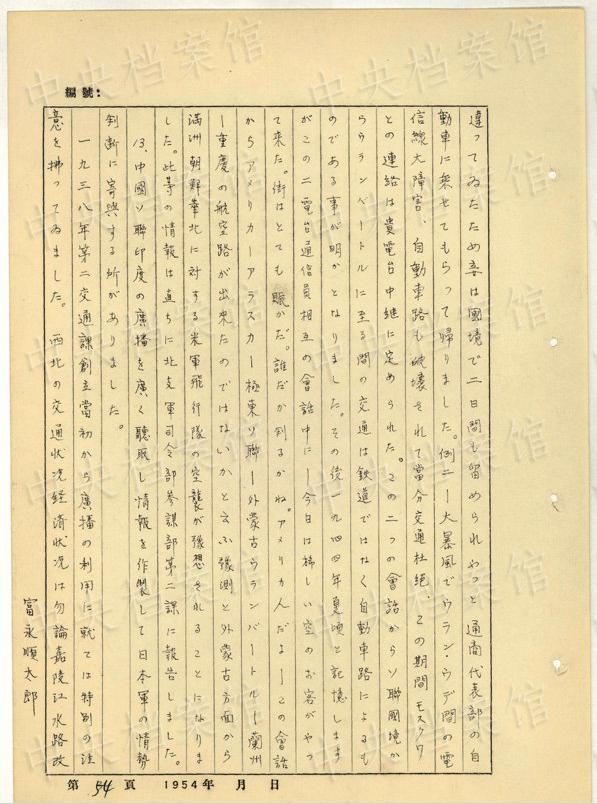 編號：
違ってゐたため妾は國境で二日間も留められやっと通商代表部の自
動車に乗せてもらって帰りました。例二ー大暴風でウラン、ウデ間の電
信線大障害、自動車路も破壊されて當分交通杜絶、この期間モスクワ
との連絡は貴電台中継に定められた。この二つの會話からソ聯國境か
らウランバートルに至る間の交通は鉄道ではなく自動車路によるも
のである事が明かとなりました。その後一九四四年夏頃と記憶します
がこの二電台通信員相互の會話中にー今日は珍しい空のお客がやっ
て来た。街はとても賑かだ。誰だか判るかね。アメリカ人だよーこの會話
からアメリカーアラスカー極東ソ聯ー外蒙古ウランバートルー蘭州
ー重慶の航空路が出来たのではないかと云ふ豫測と外蒙古方面から
満洲朝鮮華北に対する米軍飛行隊の空襲が豫想されることになりま
した。此等の情報は直ちに北支軍司令部参謀部第二課に報告しました。
13、中國ソ聯印度の廣播を廣く聴取し情報を作製して日本軍の情勢
判断に寄與する所がありました。
一九三八年第二交通課創立當初から廣播の利用に就ては特別の注
意を拂ってゐました。西北の交通状况経済状况は勿論嘉陵江水路改
富永順太郎
第 54 頁 1954年 月 日
中央档案馆